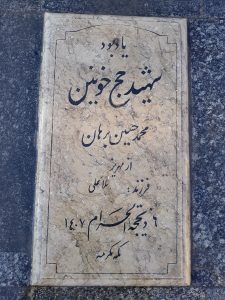 یادبود
شهید حج خونین
محمد حسین برهان
از مهریز
فرزند: غلامعلی
۶ ذیحجة الحرام ۱۴۰۷
مکه مکرمه